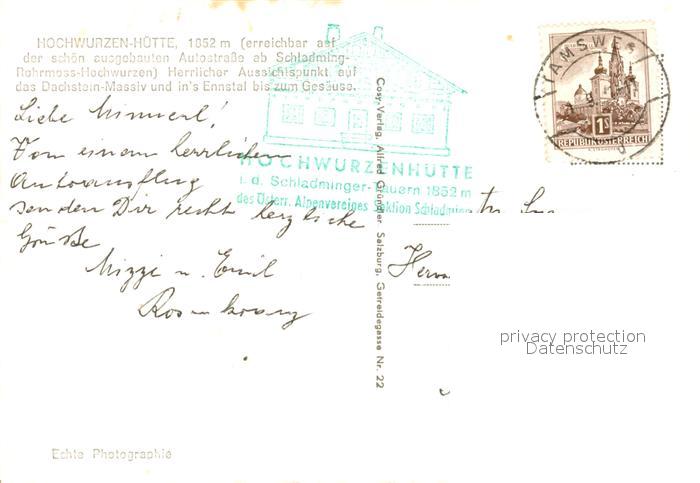 HOCHWURZEN-HÜTTE, 1852 m (erreichbar auf
der schön ausgebauten Autostraße ab Schladming-
Rohrmoos-Hochwurzen) Herrlicher Aussichtspunkt auf
das Dachstein-Massiv und in's Ennstal bis zum Gesäuse.
Liebe
Von einem herrlichen
Autoausflug
senden Dir recht herzliche
Grüße
Mizzi u. Emil
HOCHWURZENHÜTTE
i. d. Schladminger-Tauern 1852 m
des Österr. Alpenvereines Sektion Schladming
Cosy-Verlag, Alfred Gründler, Salzburg, Getreidegasse Nr. 22
1S
REPUBLIK ÖSTERREICH
privacy protection
Datenschutz
Echte Photographie